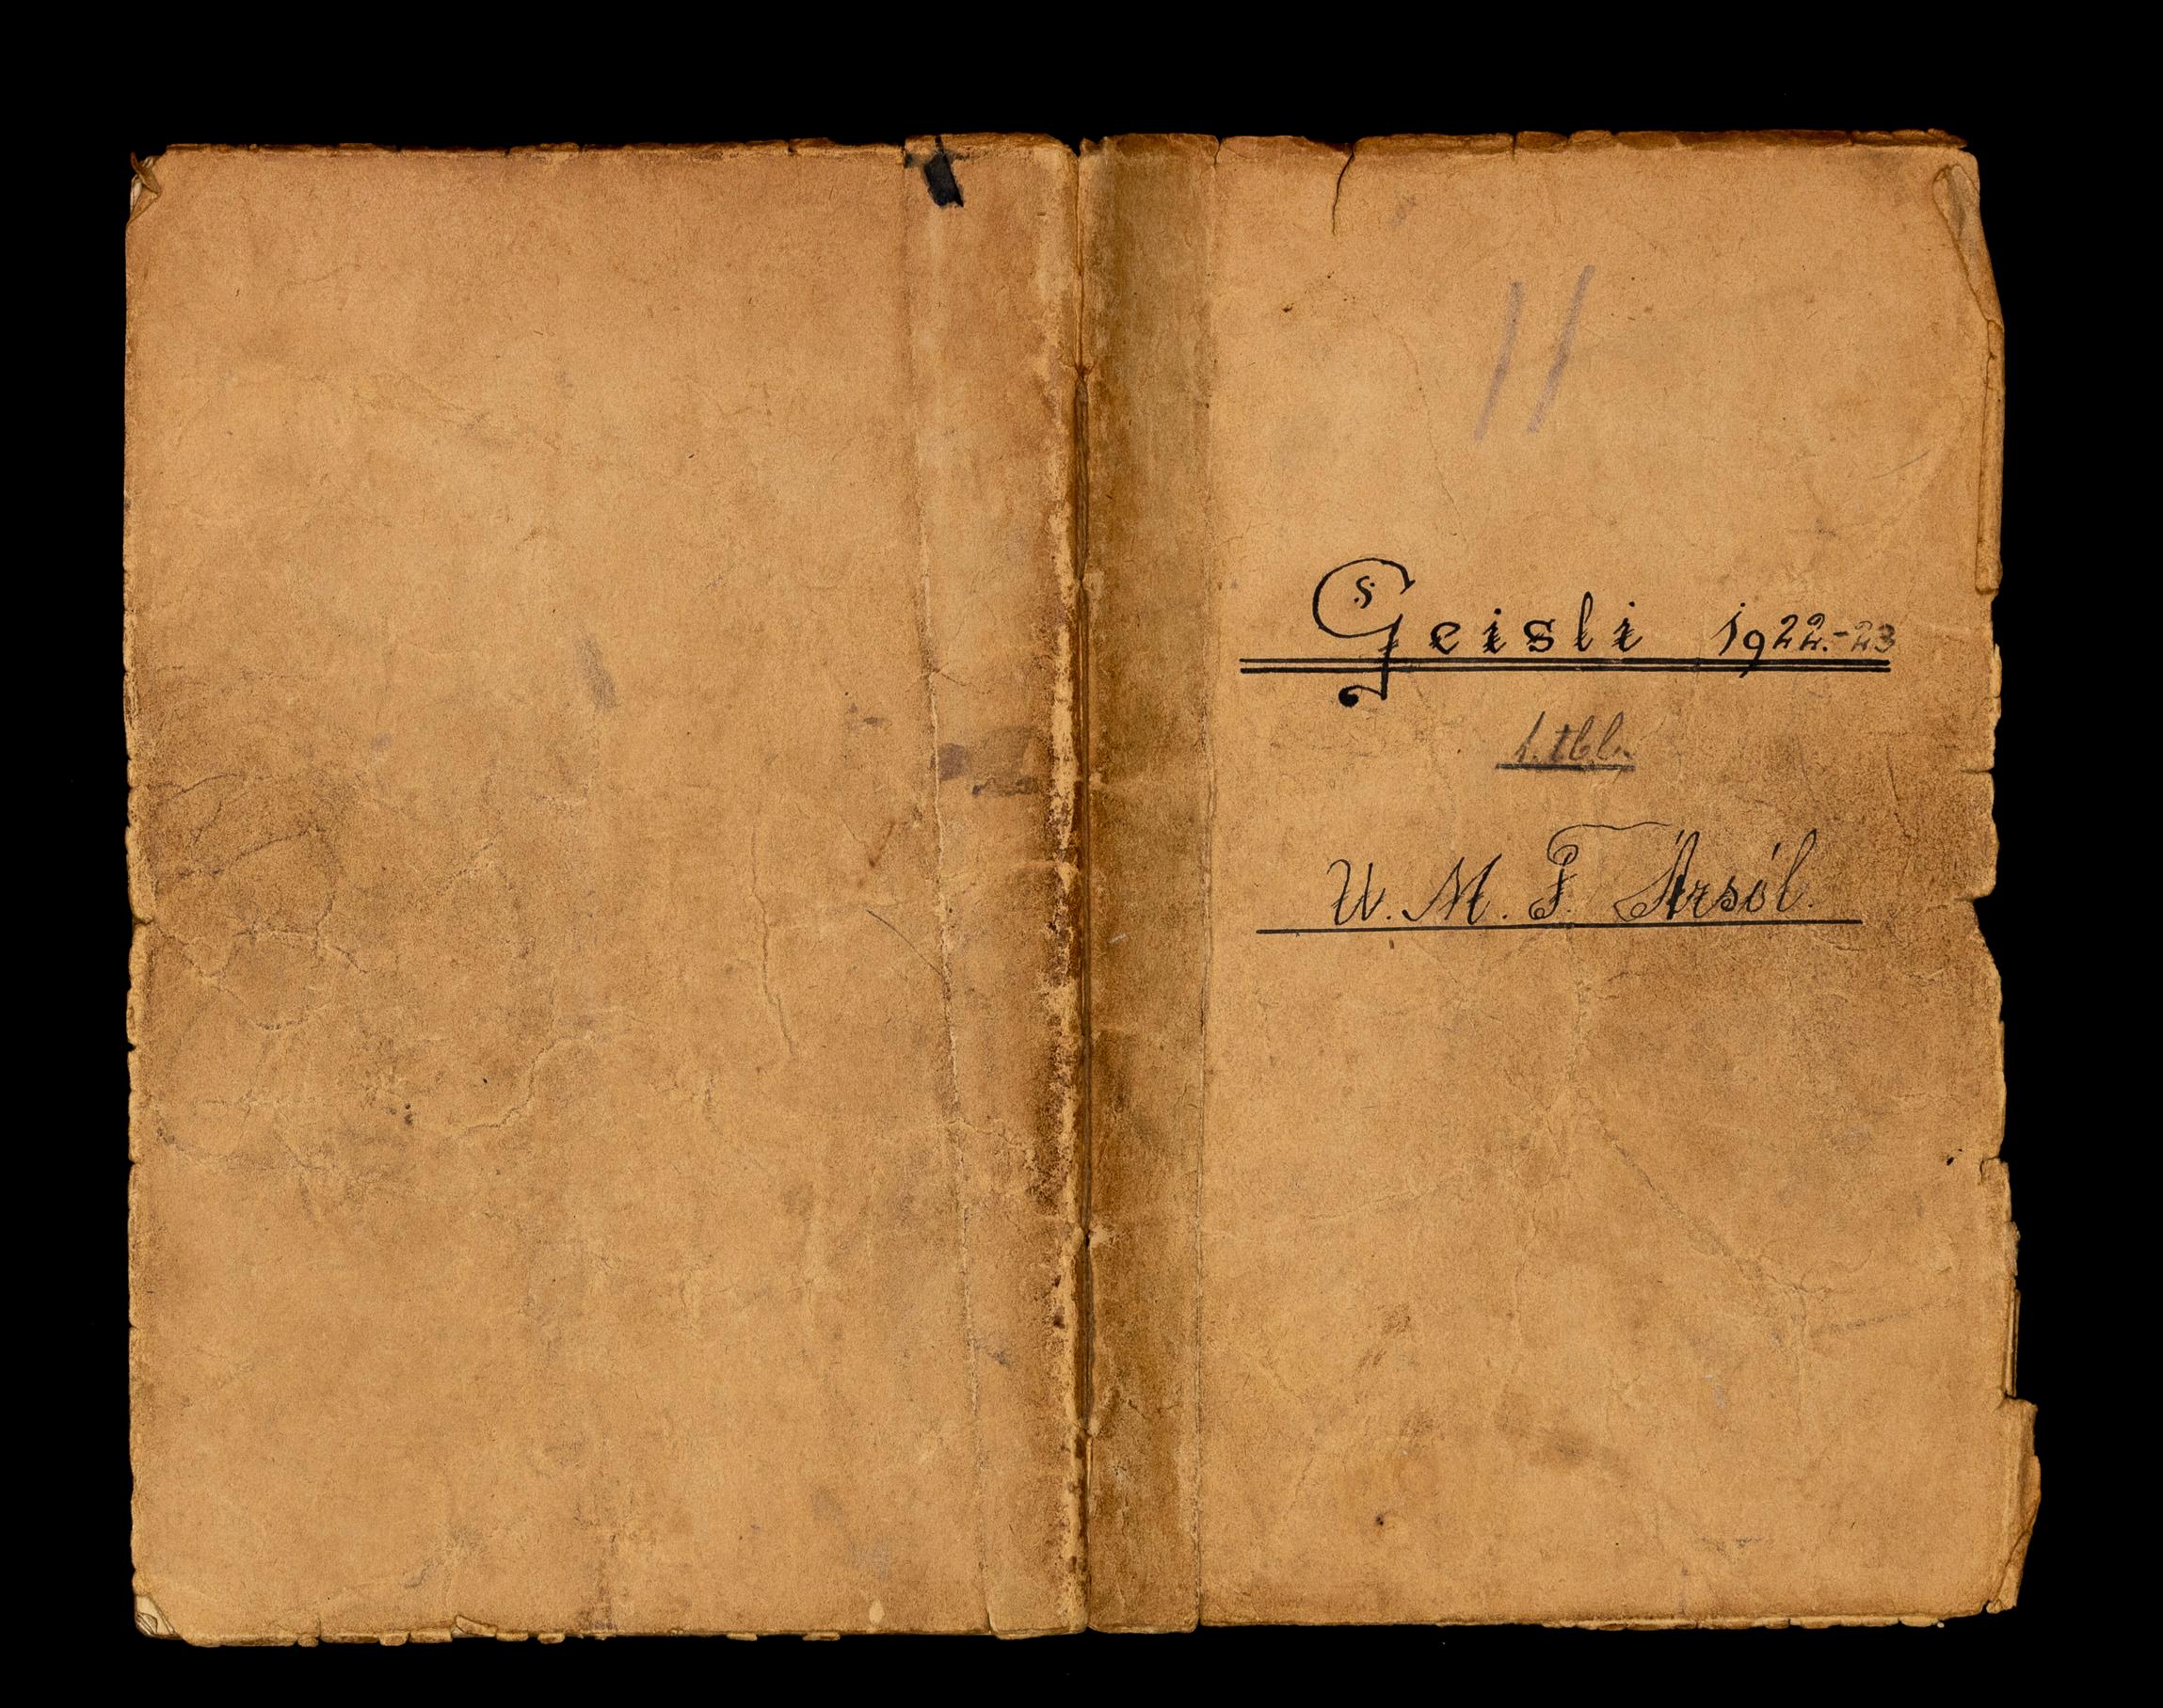 11
Geisli 1922.-23
1. tbl.
U. M. F. Ársól.